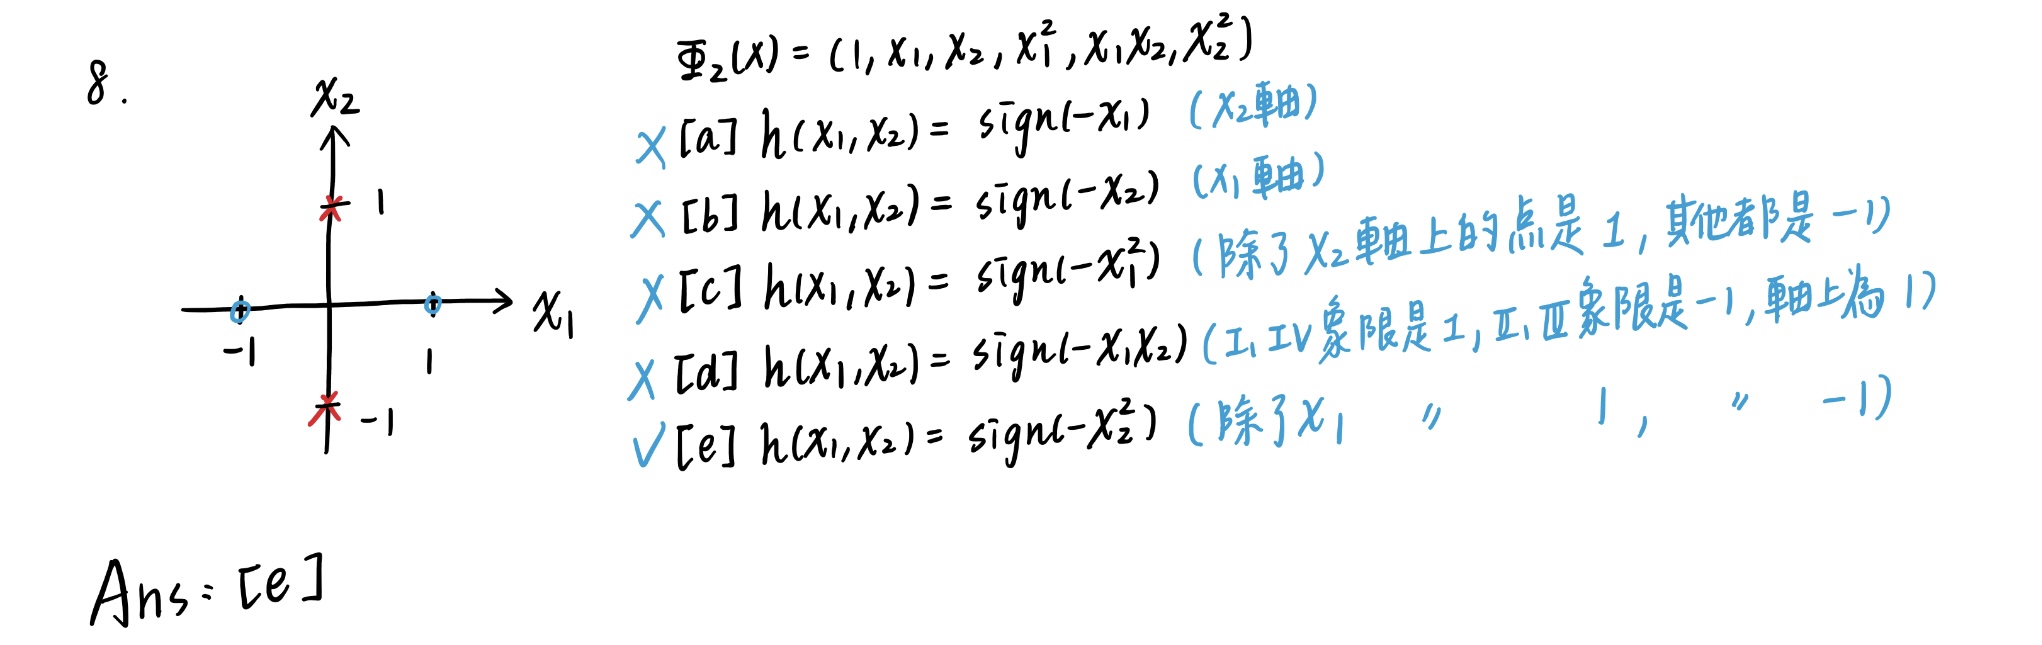 8.
Φ₂(x) = (1, x₁, x₂, x₁², x₁x₂, x₂²)
x₂
1
-1
1
x₁
-1
✗ [a] h(x₁, x₂) = sign(-x₁) (x₂軸)
✗ [b] h(x₁, x₂) = sign(-x₂) (x₁軸)
✗ [c] h(x₁, x₂) = sign(-x₁²) (除了x₂軸上的点是1, 其他都是-1)
✗ [d] h(x₁, x₂) = sign(-x₁x₂) (I、IV象限是1, II、III象限是-1, 軸上為1)
✓ [e] h(x₁, x₂) = sign(-x₂²) (除了x₁ 〃 1, 〃 -1)
Ans: [e]